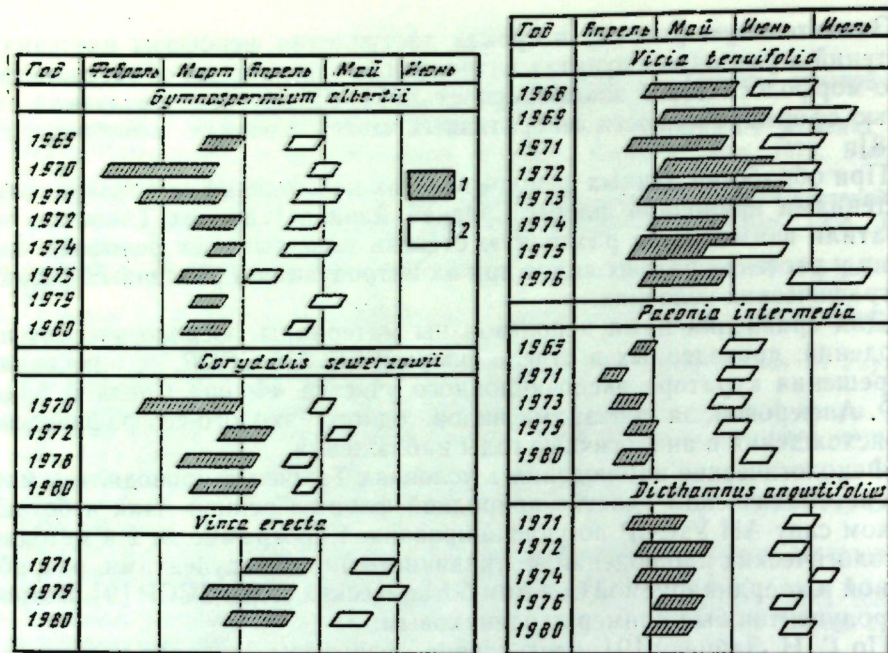 Год Февраль Март Апрель Май Июнь
Gymnospermium albertii
1969
1970
1971
1972
1974
1975
1979
1980
1
2
Corydalis sewerzowii
1970
1972
1978
1980
Vinca erecta
1971
1979
1980
Год Апрель Май Июнь Июль
Vicia tenuifolia
1968
1969
1971
1972
1973
1974
1975
1976
Paeonia intermedia
1969
1971
1973
1979
1980
Dicthamnus angustifolius
1971
1972
1974
1976
1980